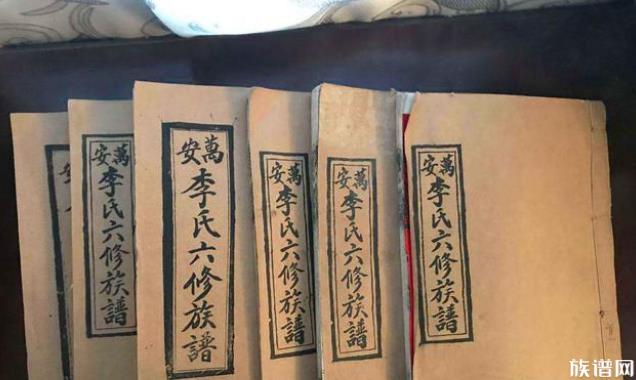 安
萬安
李氏六修族譜
萬安
李氏六修族譜
萬安
李氏六修族譜
萬安
李氏六修族譜
萬安
李氏六修族譜
族谱网